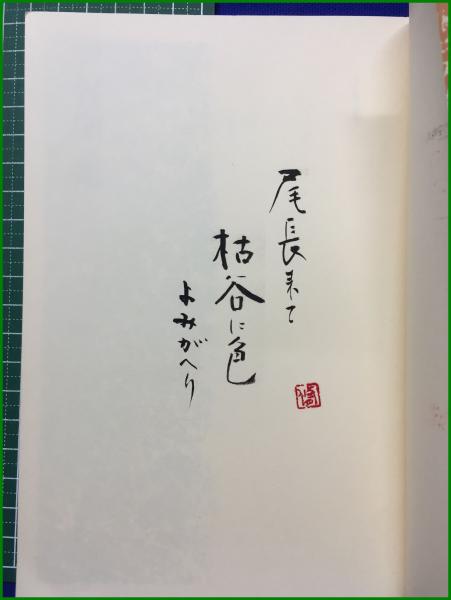 尾長来て
枯谷に色
よみがへり